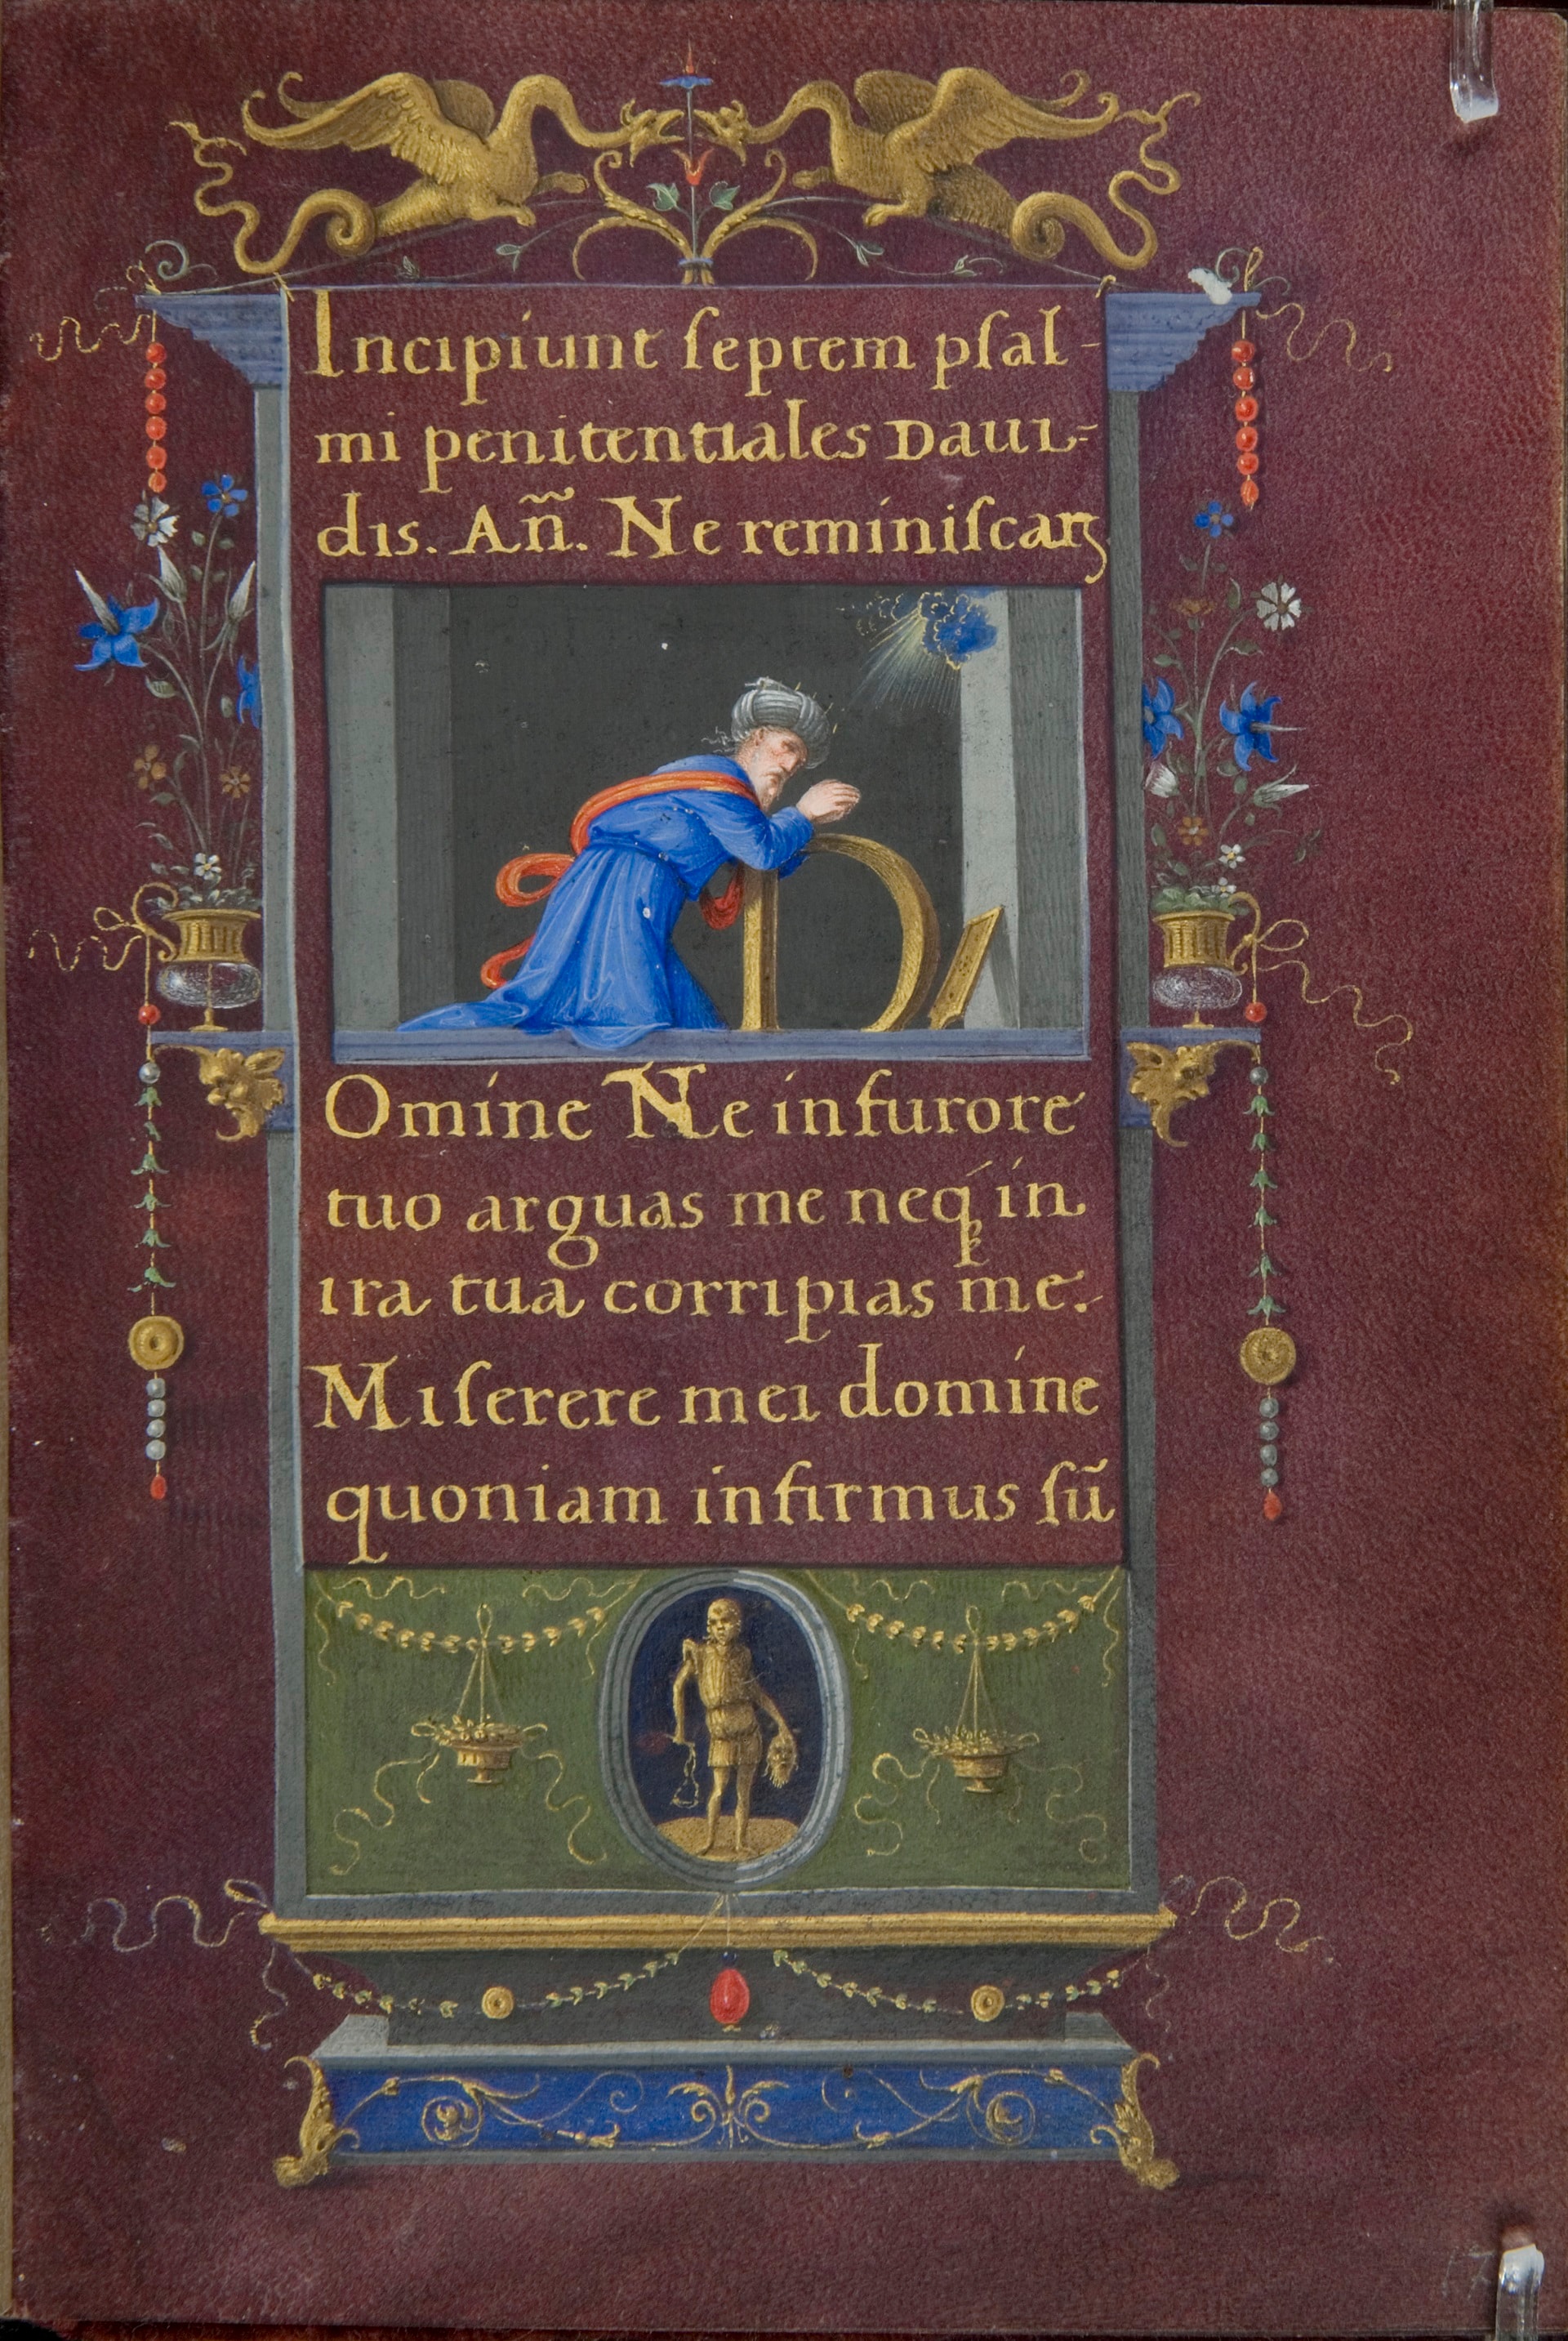 Incipiunt septem psal-
mi penitentiales Daui=
dis. Añ. Ne reminiscarꝫ
D
Omine Ne in furore
tuo arguas me neq́ in
ira tua corripias me.
Miserere mei domine
quoniam infirmus sū